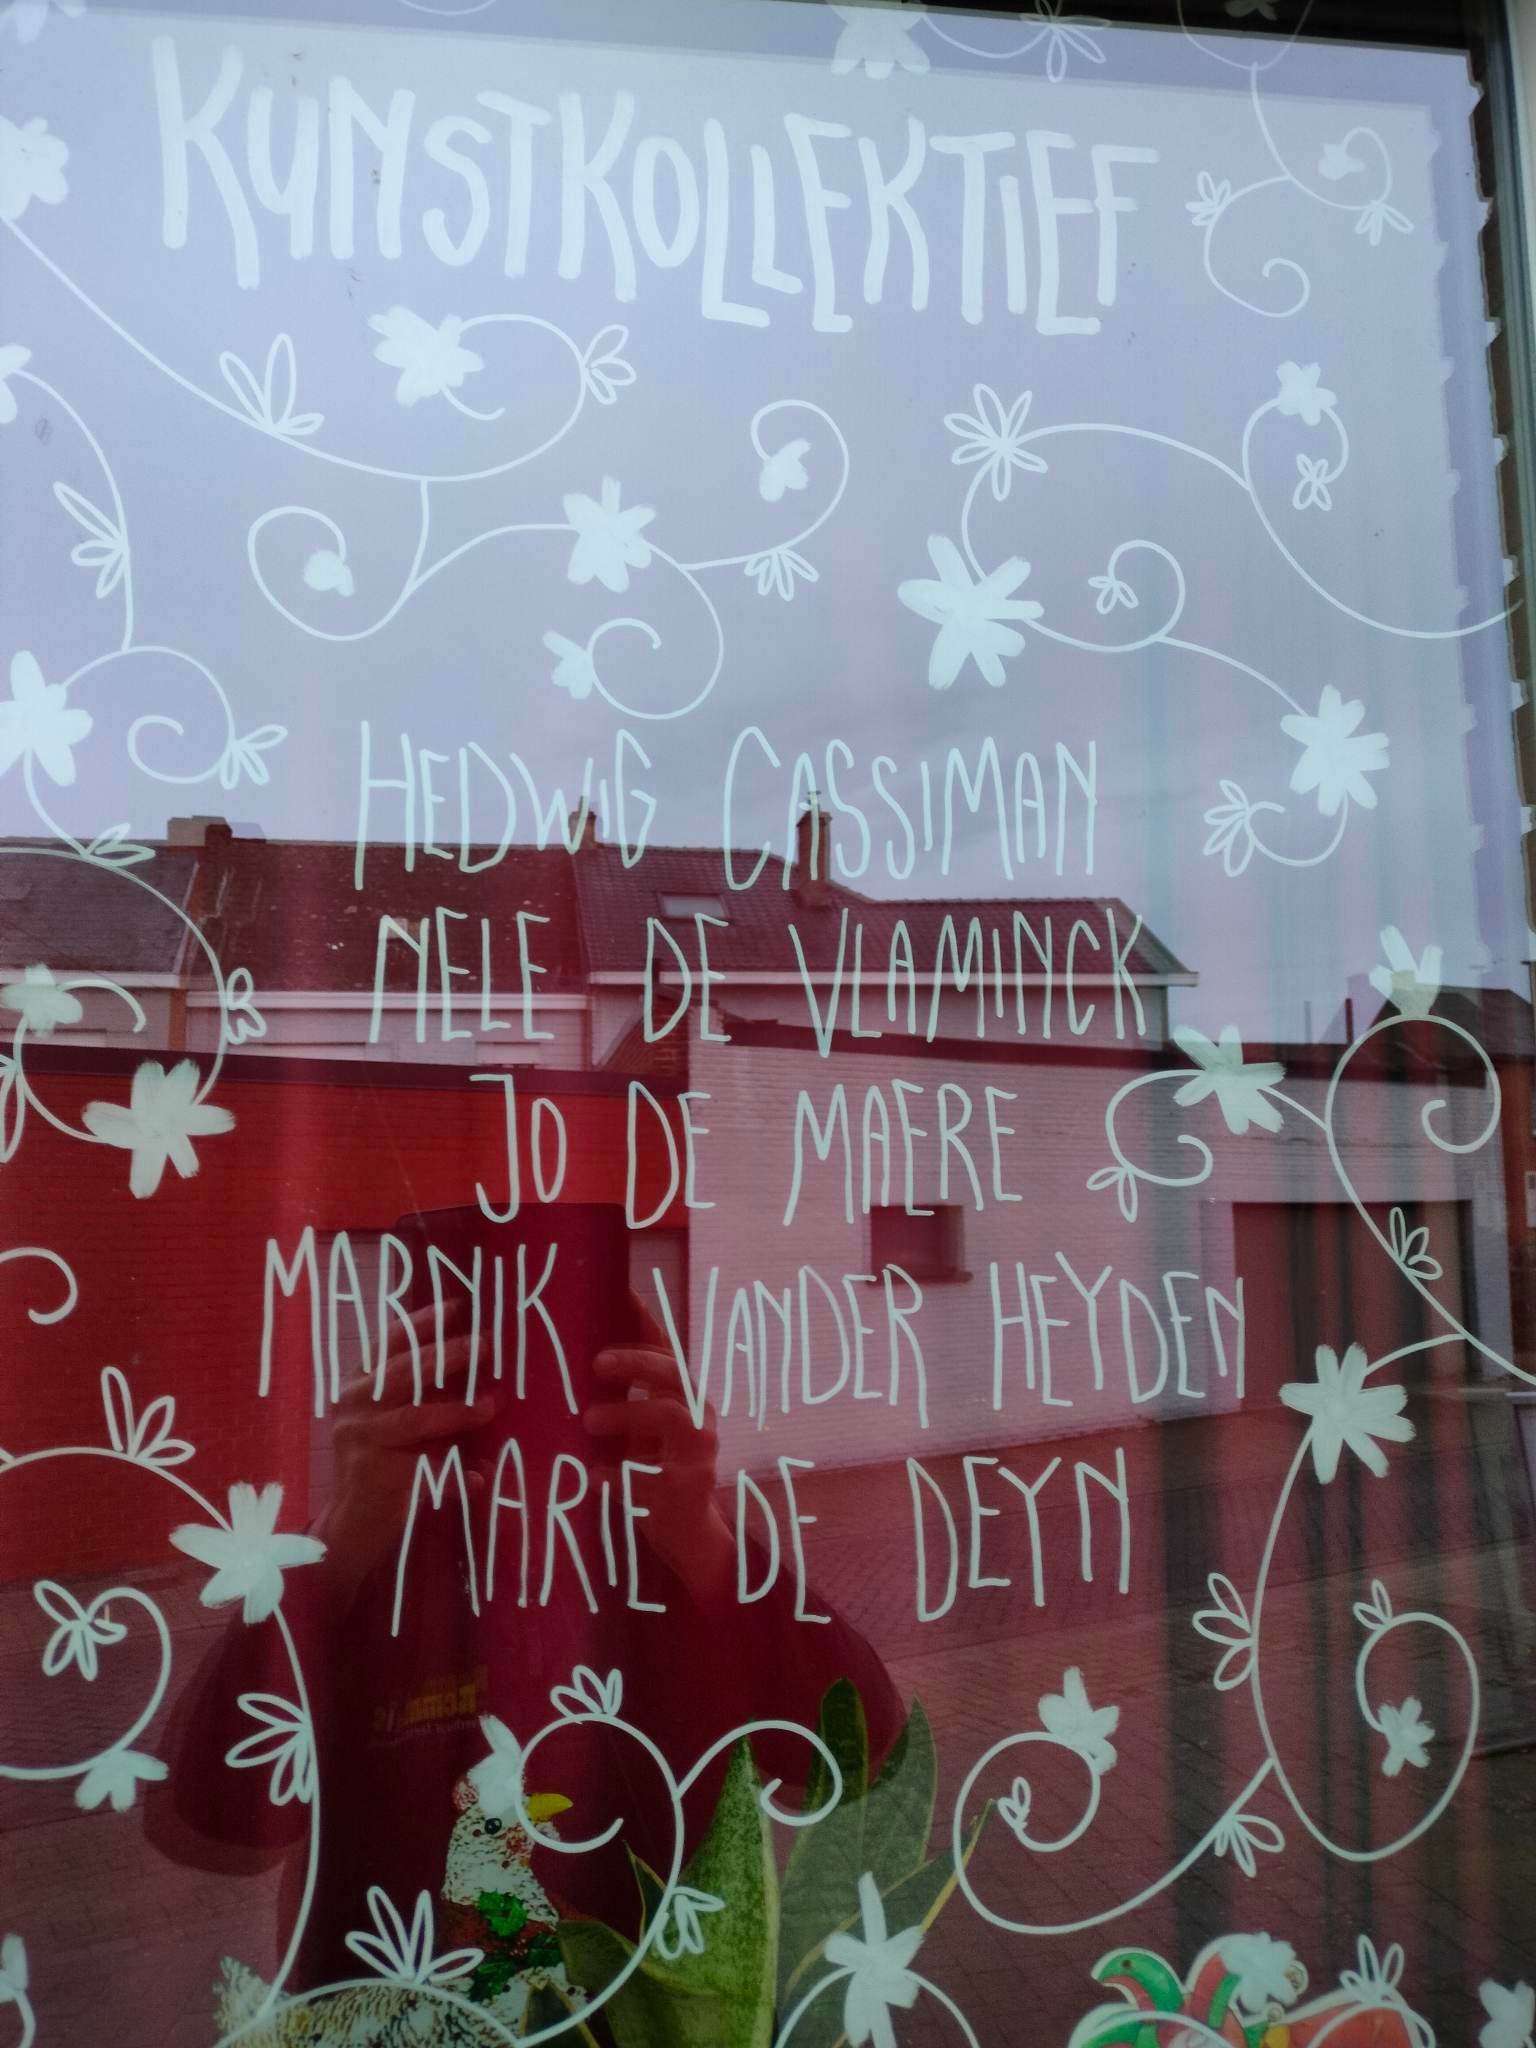 KUNSTKOLLEKTIEF
HEDWIG CASSIMAN
NELE DE VLAMINCK
JO DE MAERE
MARNIK VANDER HEYDEN
MARIE DE DEYN